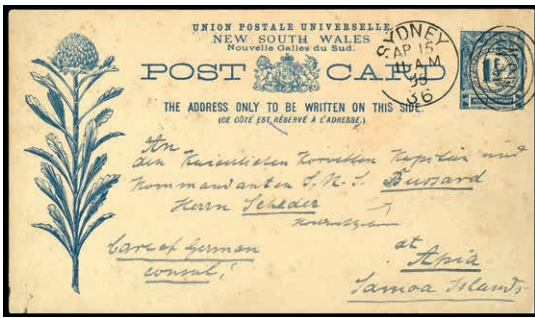 UNION POSTALE UNIVERSELLE.
NEW SOUTH WALES
Nouvelle Galles du Sud.
POST CARD
SYDNEY
AP 15
11 AM
95
86
1½
THE ADDRESS ONLY TO BE WRITTEN ON THIS SIDE.
(CE CÔTÉ EST RÉSERVÉ À L'ADRESSE.)
An
den Kaiserlichen Korvetten Kapitän und
Kommandanten S. M. S. Bussard
Herrn Scheder
Care of German
consul
at
Apia
Samoa Islands